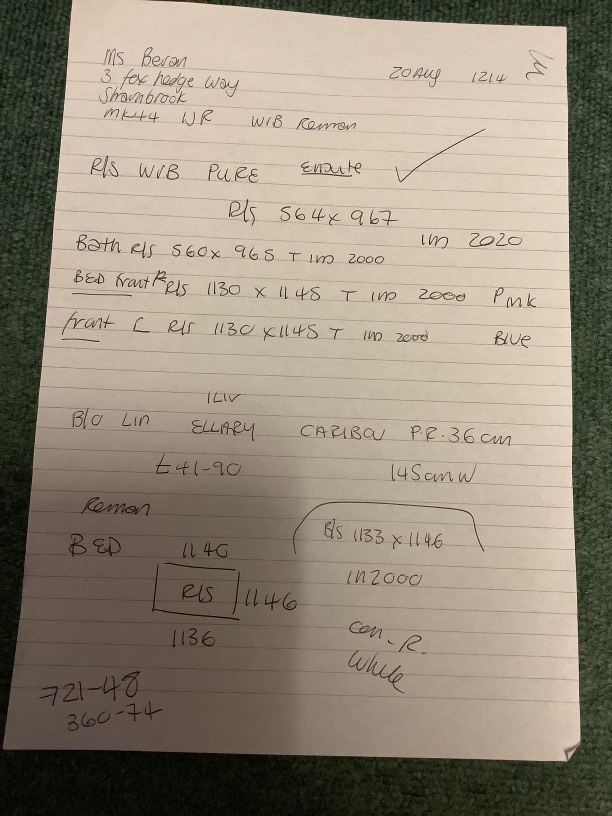 Ms Bevan
20 Aug 1214
3 fox hedge way
Sharnbrock
MK44 1JR W/B Remon
R/S W/B PURE Ensuite ✓
R/S 564 x 967
1m 2020
Bath R/S 560 x 965 T 1m 2000
BED front R R/S 1130 x 1145 T 1m 2000 Pink
front L R/S 1130 x 1145 T 1m 2000 Blue
1LIV
B/O Lin ELLARY CARIBOU P.R. 36cm
£41-90 145cm W
Remon
BED 1140 R/S 1133 x 1146
R/S 1146 1m 2000
1136 Con. R.
White
721-48
360-74